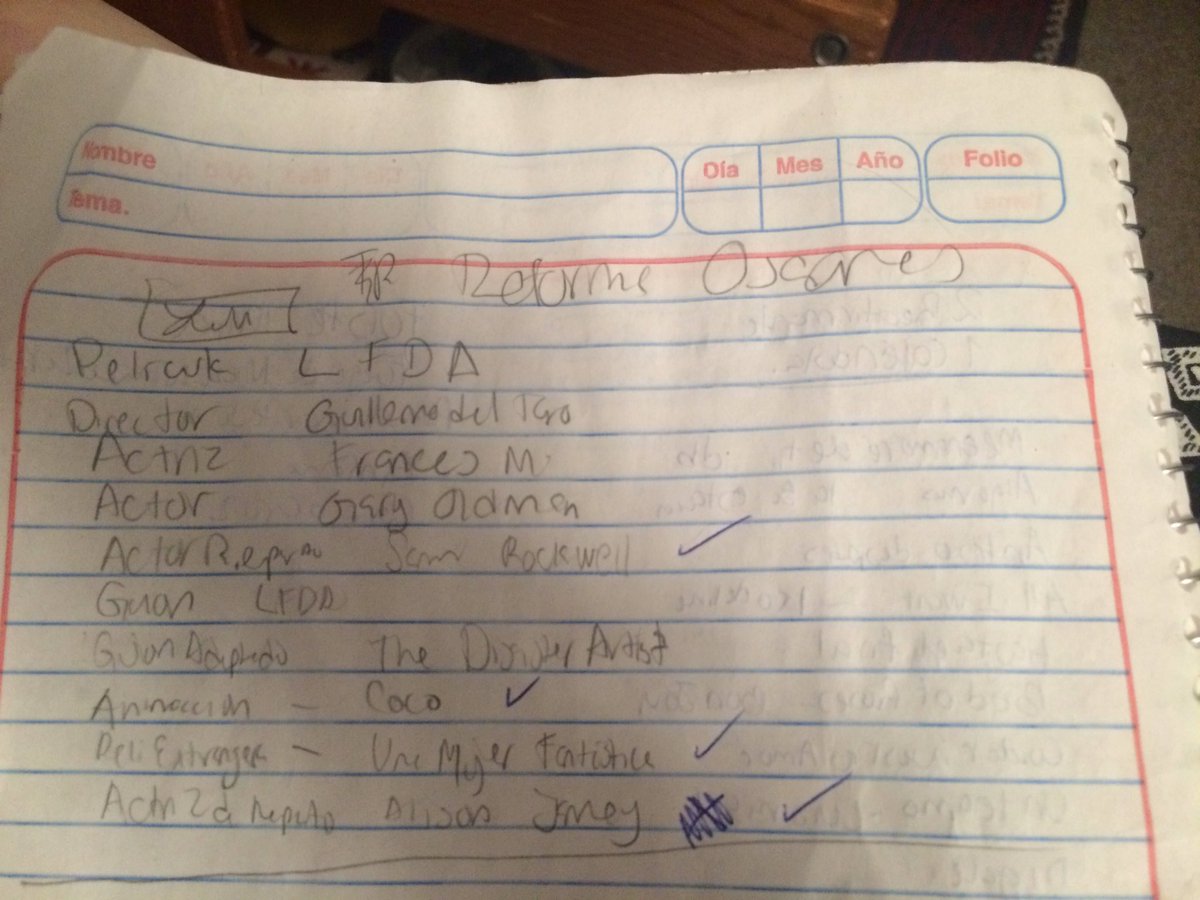 Nombre
Tema.
Día Mes Año
Folio
Reforme Oscares
LFDA
Director Guillermo del Toro
Actriz Frances M.
Actor Gary Oldman
Actor Repato Sam Rockwell
Guion LFDA
Guion Adaptado The Disister Artist
Animacción - Coco
Peli Extranjera - Una Mujer Fantástica
Actriz d Reputo Alison Jmey